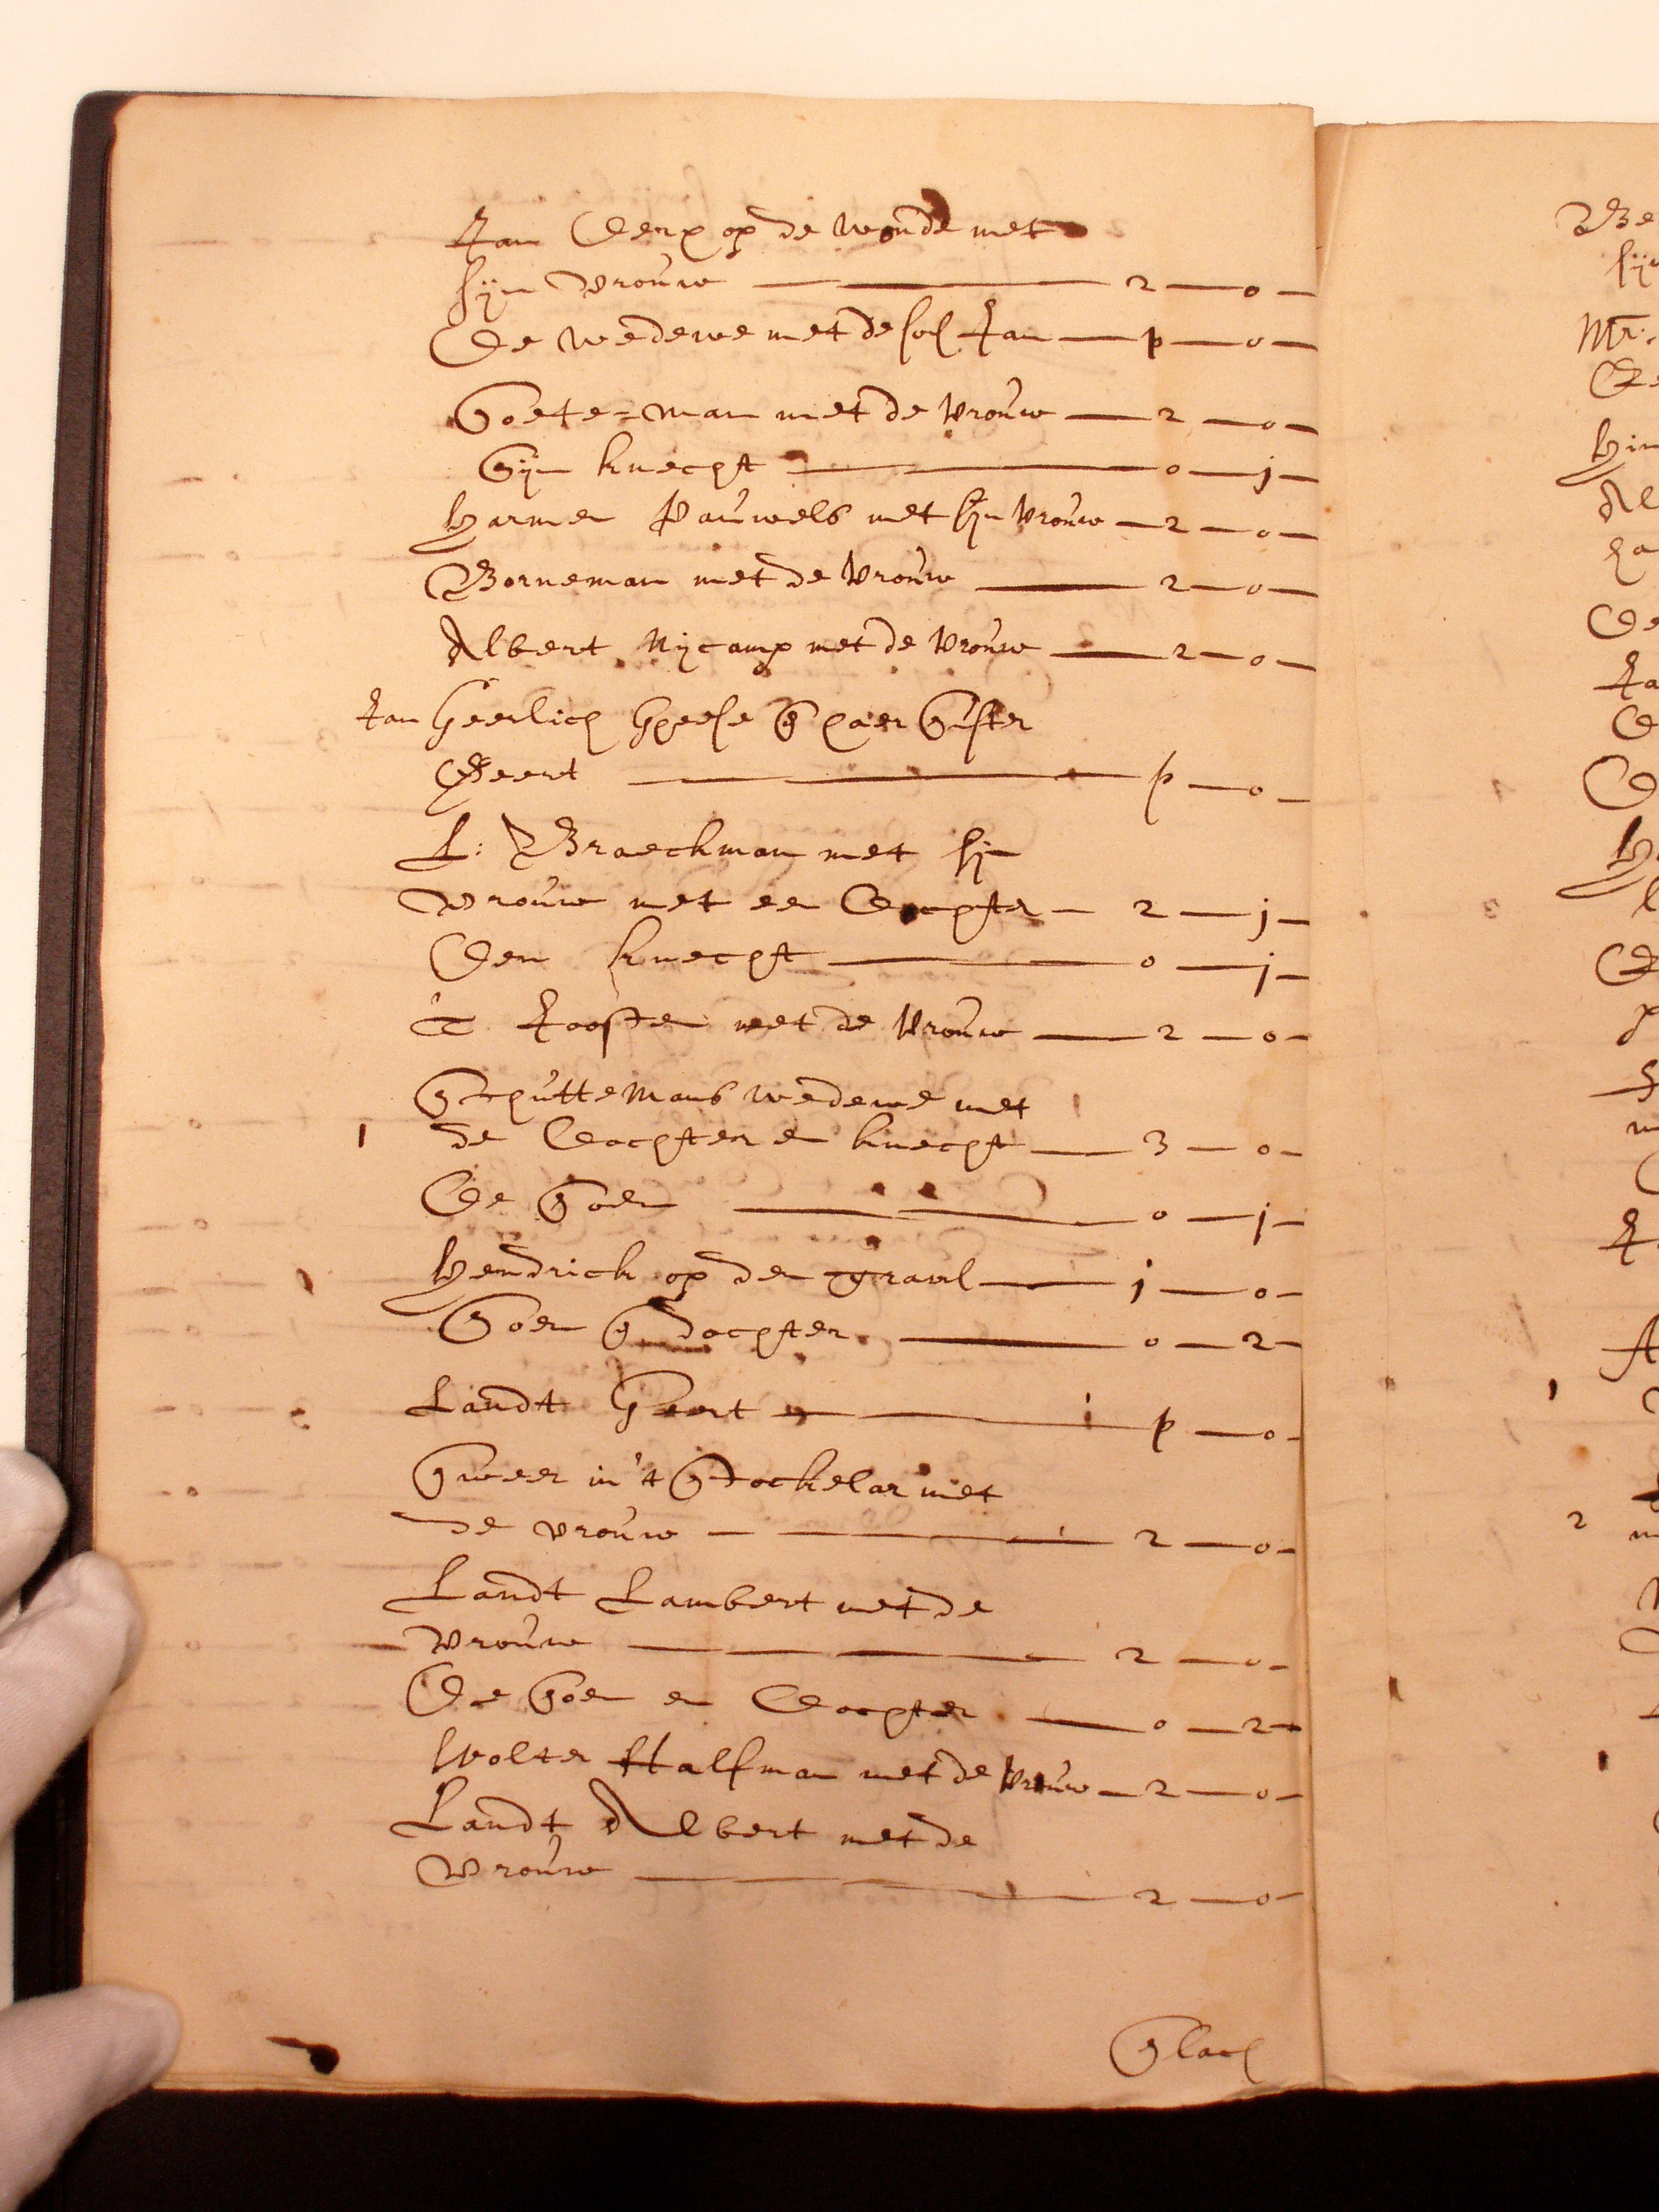 Jan Derx op de Wonde met
sijn vrouw — 2 — 0 —
De wedewe met de soe Jan — p — 0 —
Soete=man met de vrouw — 2 — 0 —
Sijn knecht — 0 — j —
Harmen Pauwels met sijn vrouw — 2 — 0 —
Borneman met de vrouw — 2 — 0 —
Albert Nijcamp met de vrouw — 2 — 0 —
Jan Geerlich Gheese & haer suster
Geert — p — 0 —
L: Braeckman met sijn
vrouw met een Dochter — 2 — j —
Den knecht — 0 — j —
T Joosten met de vrouw — 2 — 0 —
Schuttemans wedewe met
1 de Dochter en knecht — 3 — 0 —
De Soen — 0 — j —
Hendrick op den — j — 0 —
Soen & dochter — 0 — 2 —
Landt Geert — p — 0 —
Sweer in 't Stockelar met
de vrouw — 2 — 0 —
Landt Lambert met de
vrouw — 2 — 0 —
De Soen en Dochter — 0 — 2 —
Wolter Halfman met de vrouw — 2 — 0 —
Landt Albert met de
vrouw — 2 — 0 —
Slach
Mr.
3
1
2